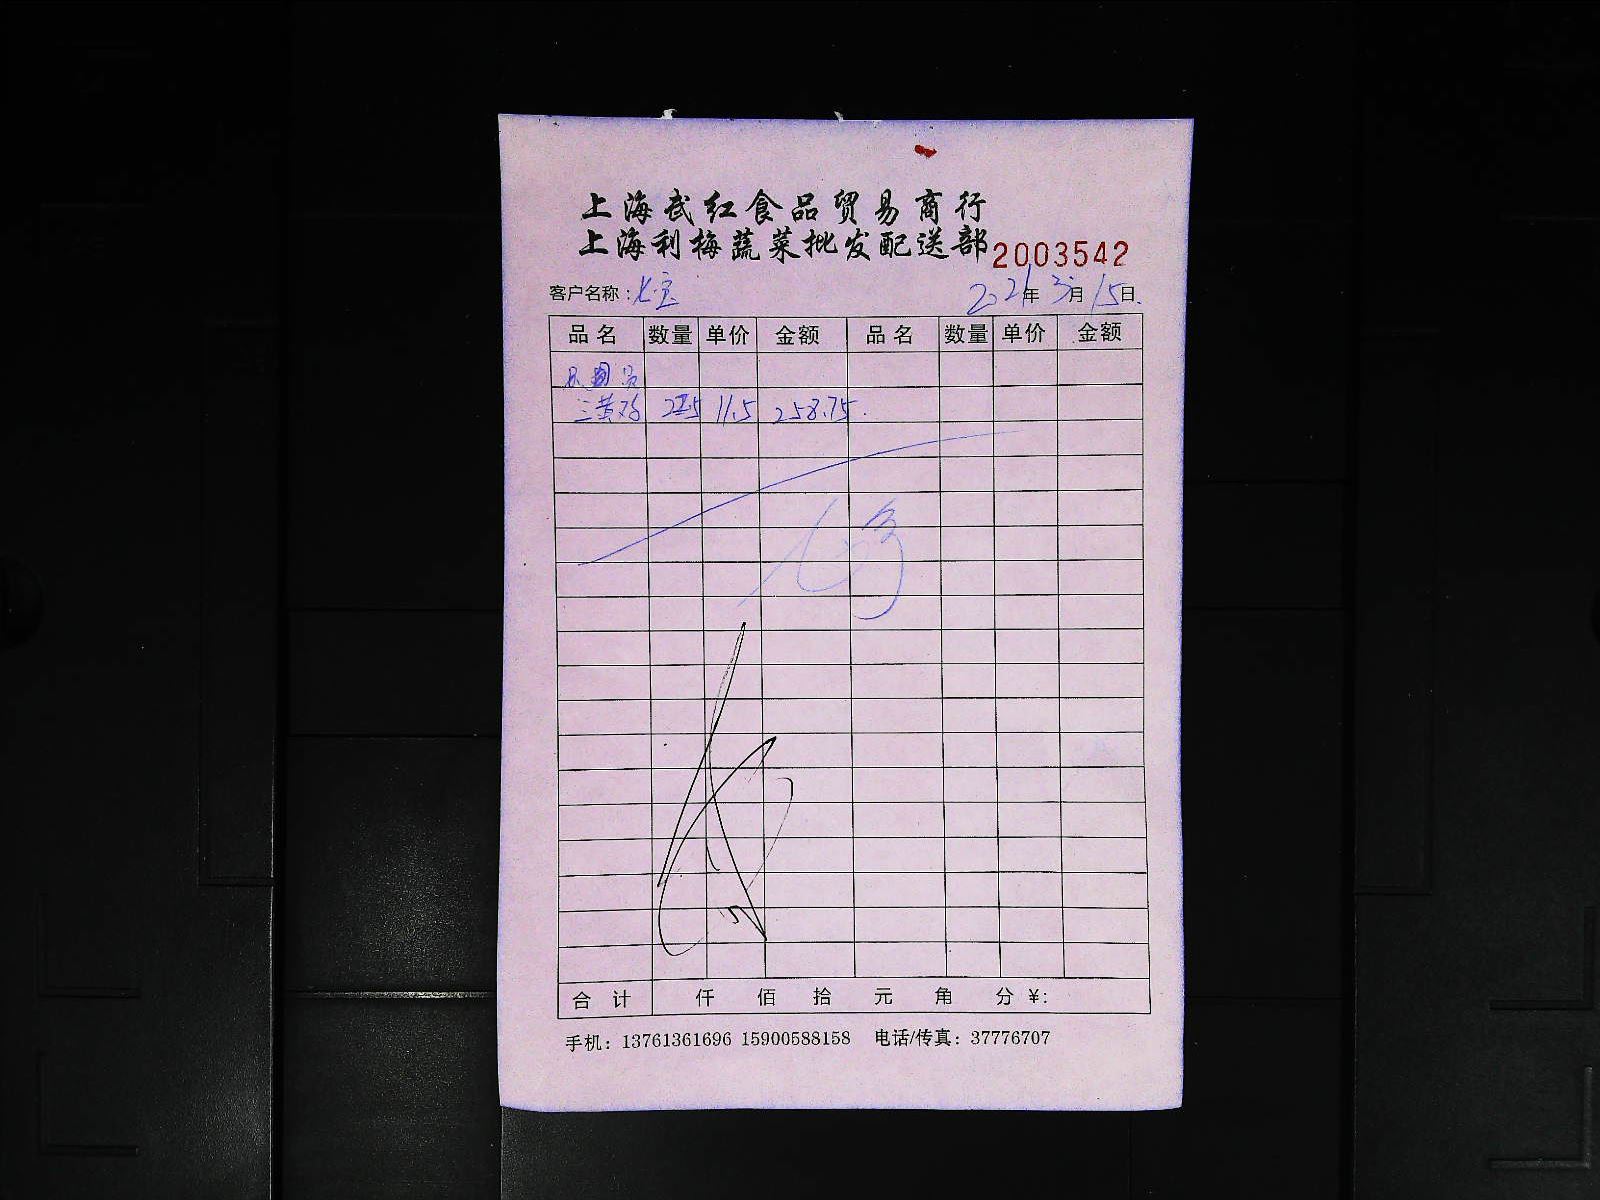 上海武红食品贸易商行
上海利梅蔬菜批发配送部 2003542
客户名称：七宝 2021年3月15日
品名 数量 单价 金额 品名 数量 单价 金额
三黄鸡 22.5 11.5 258.75
合计 仟 佰 拾 元 角 分 ¥:
手机：13761361696 15900588158 电话/传真：37776707